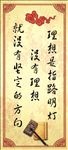 理想是指路明灯
没有理想
就没有坚定的方向